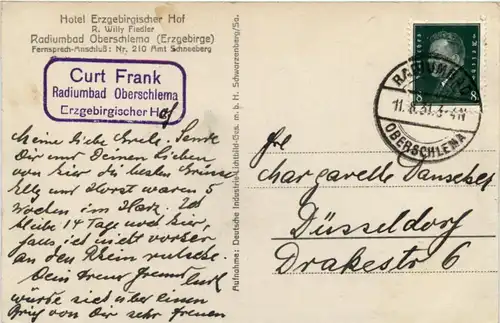 Hotel Erzgebirgischer Hof
R. Willy Fiedler
Radiumbad Oberschlema (Erzgebirge)
Fernsprech-Anschluß: Nr. 210 Amt Schneeberg
Curt Frank
Radiumbad Oberschlema
Erzgebirgischer Hof
Meine liebe Sende
Dir und Deinen Lieben
von hier die besten Grüsse
Elly und Horst waren 5
Wochen im Harz. Ich
bleibe 14 Tage noch hier,
falls ich nicht vorher
an den Rhein rutsche.
Dein treuer Freund Curt
würde sich über einen
Brief von Dir sehr freuen
Aufnahme: Deutsche Industrie-Lichtbild-Ges. m. b. H. Schwarzenberg/Sa.
RADIUMBAD
11. 8. 31. 3-4 N
OBERSCHLEMA
8 8
Margarethe
Düsseldorf
Drakestr 6